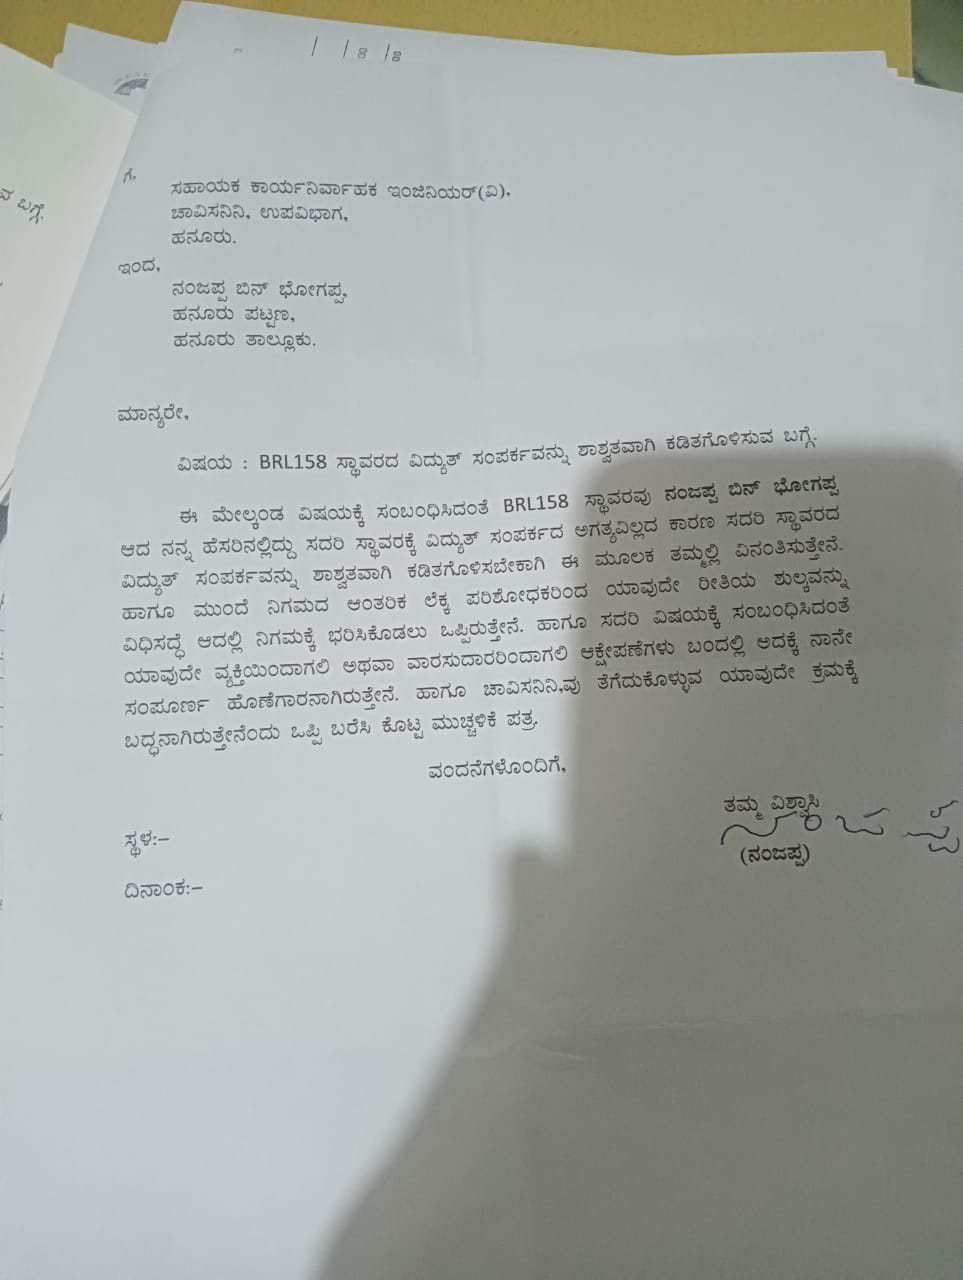 ವ ಬಗ್ಗೆ.
ಗೆ,
ಸಹಾಯಕ ಕಾರ್ಯನಿರ್ವಾಹಕ ಇಂಜಿನಿಯರ್(ವಿ),
ಚಾವಿಸನಿನಿ, ಉಪವಿಭಾಗ,
ಹನೂರು.
ಇಂದ,
ನಂಜಪ್ಪ ಬಿನ್ ಭೋಗಪ್ಪ,
ಹನೂರು ಪಟ್ಟಣ,
ಹನೂರು ತಾಲ್ಲೂಕು.
ಮಾನ್ಯರೇ,
ವಿಷಯ : BRL158 ಸ್ಥಾವರದ ವಿದ್ಯುತ್ ಸಂಪರ್ಕವನ್ನು ಶಾಶ್ವತವಾಗಿ ಕಡಿತಗೊಳಿಸುವ ಬಗ್ಗೆ.
ಈ ಮೇಲ್ಕಂಡ ವಿಷಯಕ್ಕೆ ಸಂಬಂಧಿಸಿದಂತೆ BRL158 ಸ್ಥಾವರವು ನಂಜಪ್ಪ ಬಿನ್ ಭೋಗಪ್ಪ
ಆದ ನನ್ನ ಹೆಸರಿನಲ್ಲಿದ್ದು ಸದರಿ ಸ್ಥಾವರಕ್ಕೆ ವಿದ್ಯುತ್ ಸಂಪರ್ಕದ ಅಗತ್ಯವಿಲ್ಲದ ಕಾರಣ ಸದರಿ ಸ್ಥಾವರದ
ವಿದ್ಯುತ್ ಸಂಪರ್ಕವನ್ನು ಶಾಶ್ವತವಾಗಿ ಕಡಿತಗೊಳಿಸಬೇಕಾಗಿ ಈ ಮೂಲಕ ತಮ್ಮಲ್ಲಿ ವಿನಂತಿಸುತ್ತೇನೆ.
ಹಾಗೂ ಮುಂದೆ ನಿಗಮದ ಆಂತರಿಕ ಲೆಕ್ಕ ಪರಿಶೋಧಕರಿಂದ ಯಾವುದೇ ರೀತಿಯ ಶುಲ್ಕವನ್ನು
ವಿಧಿಸದ್ಧೆ ಆದಲ್ಲಿ ನಿಗಮಕ್ಕೆ ಭರಿಸಿಕೊಡಲು ಒಪ್ಪಿರುತ್ತೇನೆ. ಹಾಗೂ ಸದರಿ ವಿಷಯಕ್ಕೆ ಸಂಬಂಧಿಸಿದಂತೆ
ಯಾವುದೇ ವ್ಯಕ್ತಿಯಿಂದಾಗಲಿ ಅಥವಾ ವಾರಸುದಾರರಿಂದಾಗಲಿ ಆಕ್ಷೇಪಣೆಗಳು ಬಂದಲ್ಲಿ ಅದಕ್ಕೆ ನಾನೇ
ಸಂಪೂರ್ಣ ಹೊಣೆಗಾರನಾಗಿರುತ್ತೇನೆ. ಹಾಗೂ ಚಾವಿಸನಿನಿ,ವು ತೆಗೆದುಕೊಳ್ಳುವ ಯಾವುದೇ ಕ್ರಮಕ್ಕೆ
ಬದ್ಧನಾಗಿರುತ್ತೇನೆಂದು ಒಪ್ಪಿ ಬರೆಸಿ ಕೊಟ್ಟ ಮುಚ್ಚಳಿಕೆ ಪತ್ರ.
ವಂದನೆಗಳೊಂದಿಗೆ,
ತಮ್ಮ ವಿಶ್ವಾಸಿ
(ನಂಜಪ್ಪ)
ಸ್ಥಳ:–
ದಿನಾಂಕ:–